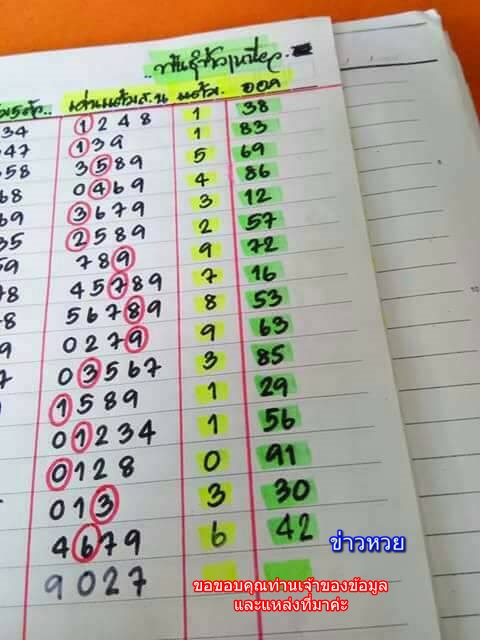 ออก
34 1248 1 38
47 139 1 83
58 3589 5 69
68 0469 4 86
69 3679 3 12
35 2589 2 57
59 789 9 72
78 45789 7 16
8 56789 8 53
9 0279 9 63
7 03567 3 85
1589 1 29
01234 1 56
0128 0 91
013 3 30
4679 6 42
ข่าวหวย
9027
ขอขอบคุณท่านเจ้าของข้อมูล
และแหล่งที่มาค่ะ